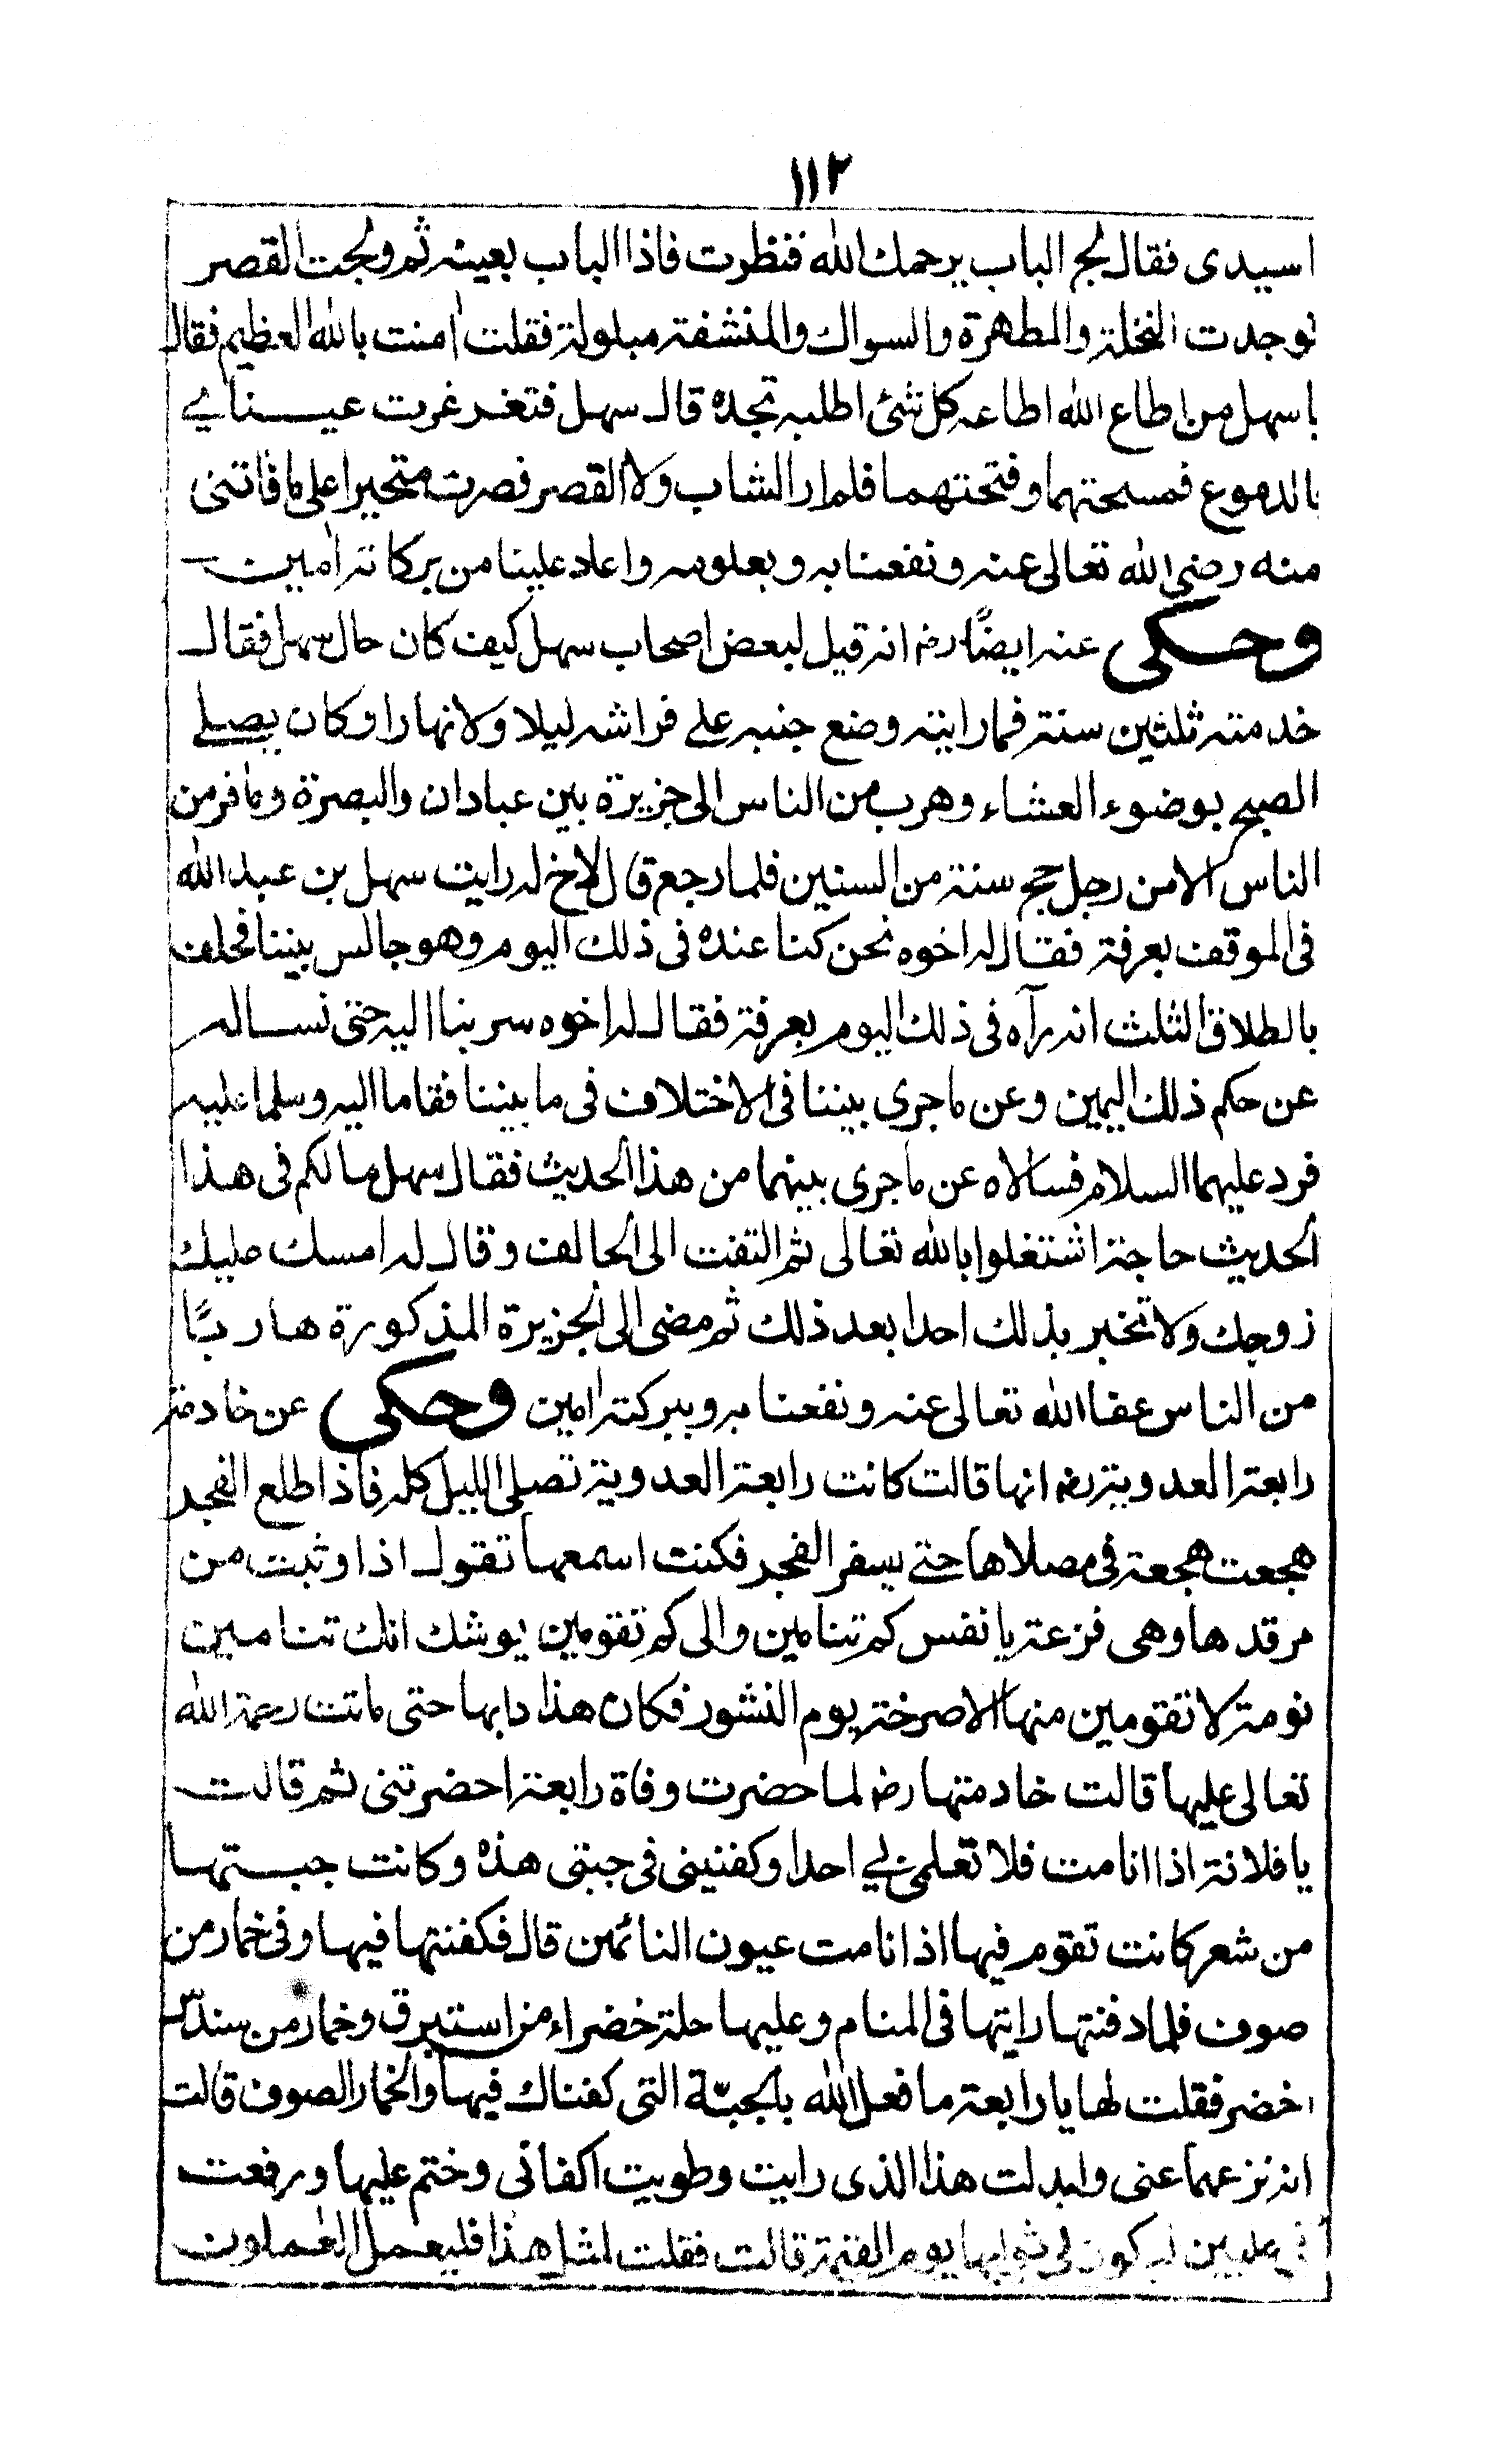 ١١٢
اسيدى فقال لج الباب يرحمك الله فنظرت فاذا الباب بعينه ثم ولجت القصر
فوجدت النخلة والمطهرة والسواك والمنشفة مبلولة فقلت اٰمنت بالله العظيم فقال
يا سهل من اطاع الله اطاعه كل شئ اطلبه تجده قال سهل فتغرغرت عيناي
بالدموع فمسحتهما وفتحتهما فلم ار الشاب ولا القصر فصرت متحيرا على ما فاتنى
منه رضى الله تعالى عنه ونفعنا به وبعلومه واعاد علينا من بركاته اٰمين
وحكى عنه ايضًا رض انه قيل لبعض اصحاب سهل كيف كان حال سهل فقال
خدمته ثلثين سنة فما رايته وضع جنبه على فراشه ليلا ولا نهارا وكان يصلے
الصبح بوضوء العشاء وهرب من الناس الى جزيرة بين عبادان والبصرة وما فر من
الناس الا من رجل حج سنة من السنين فلما رجع قال لاخ له رايت سهل بن عبد الله
فى الموقف بعرفة فقال له اخوه نحن كنا عنده فى ذلك اليوم وهو جالس بيننا فحلف
بالطلاق الثلث انه رآه فى ذلك اليوم بعرفة فقال له اخوه سر بنا اليه حتى نساله
عن حكم ذلك اليمين وعن ما جرى بيننا فى الاختلاف فى ما بيننا فقاما اليه وسلما عليه
فرد عليهما السلام فسالاه عن ما جرى بينهما من هذا الحديث فقال سهل مالكم فى هذا
الحديث حاجة اشتغلوا بالله تعالى ثم التفت الى الحالف وقال له امسك عليك
زوجك ولا تخبر بذلك احدا بعد ذلك ثم مضى الى الجزيرة المذكورة هاربًا
من الناس عفا الله تعالى عنه ونفعنا به وببركته اٰمين وحكى عن خادمة
رابعة العدوية رض انها قالت كانت رابعة العدوية تصلى الليل كله فاذا طلع الفجر
هجعت هجعة فى مصلاها حتے يسفر الفجر فكنت اسمعها تقول اذا وثبت من
مرقدها وهى فزعة يا نفس كم تنامين والى كم تقومين يوشك انك تنامين
نومة لا تقومين منها الا صرخة يوم النشور فكان هذا دابها حتى ماتت رحمة الله
تعالى عليها قالت خادمتها رض لما حضرت وفاة رابعة احضرتنى ثم قالت
يا فلانة اذا انا مت فلا تعلمى بے احدا وكفنينى فى جبتى هذه وكانت جبتها
من شعر كانت تقوم فيها اذا نامت عيون النائمين قال فكفنتها فيها وفى خمار من
صوف فلما دفنتها رايتها فى المنام وعليها حلة خضراء من استبرق وخمار من سندس
اخضر فقلت لها يا رابعة ما فعل الله بالجبّة التى كفناك فيها والخمار الصوف قالت
انه نزعهما عنى وابدلت هذا الذى رايت وطويت اكفانى وختم عليها ورفعت
فى عليين ليكون لى ثوابها يوم القيمة قالت فقلت لمثل هذا فليعمل العٰملون